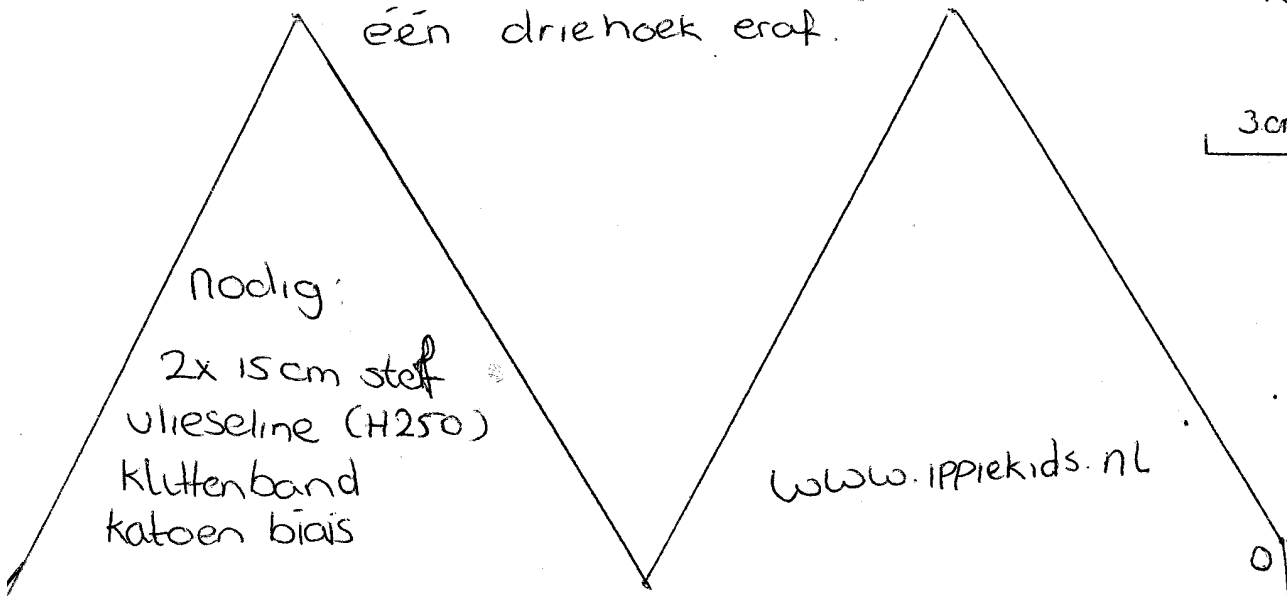 één driehoek eraf.
3 cm
nodig:
2x 15 cm stof
vlieseline (H250)
klittenband
katoen biais
www.ippiekids.nl
0